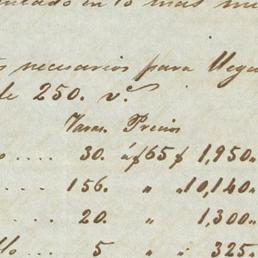 en 10 mas
necesarios para llegar
de 250. v.ˢ
Varas. Precios
.... 30. á $65 $ 1,950„
.... 156. „ „ 10,140„
.... 20. „ 1,300„
.... 5 „ 325„